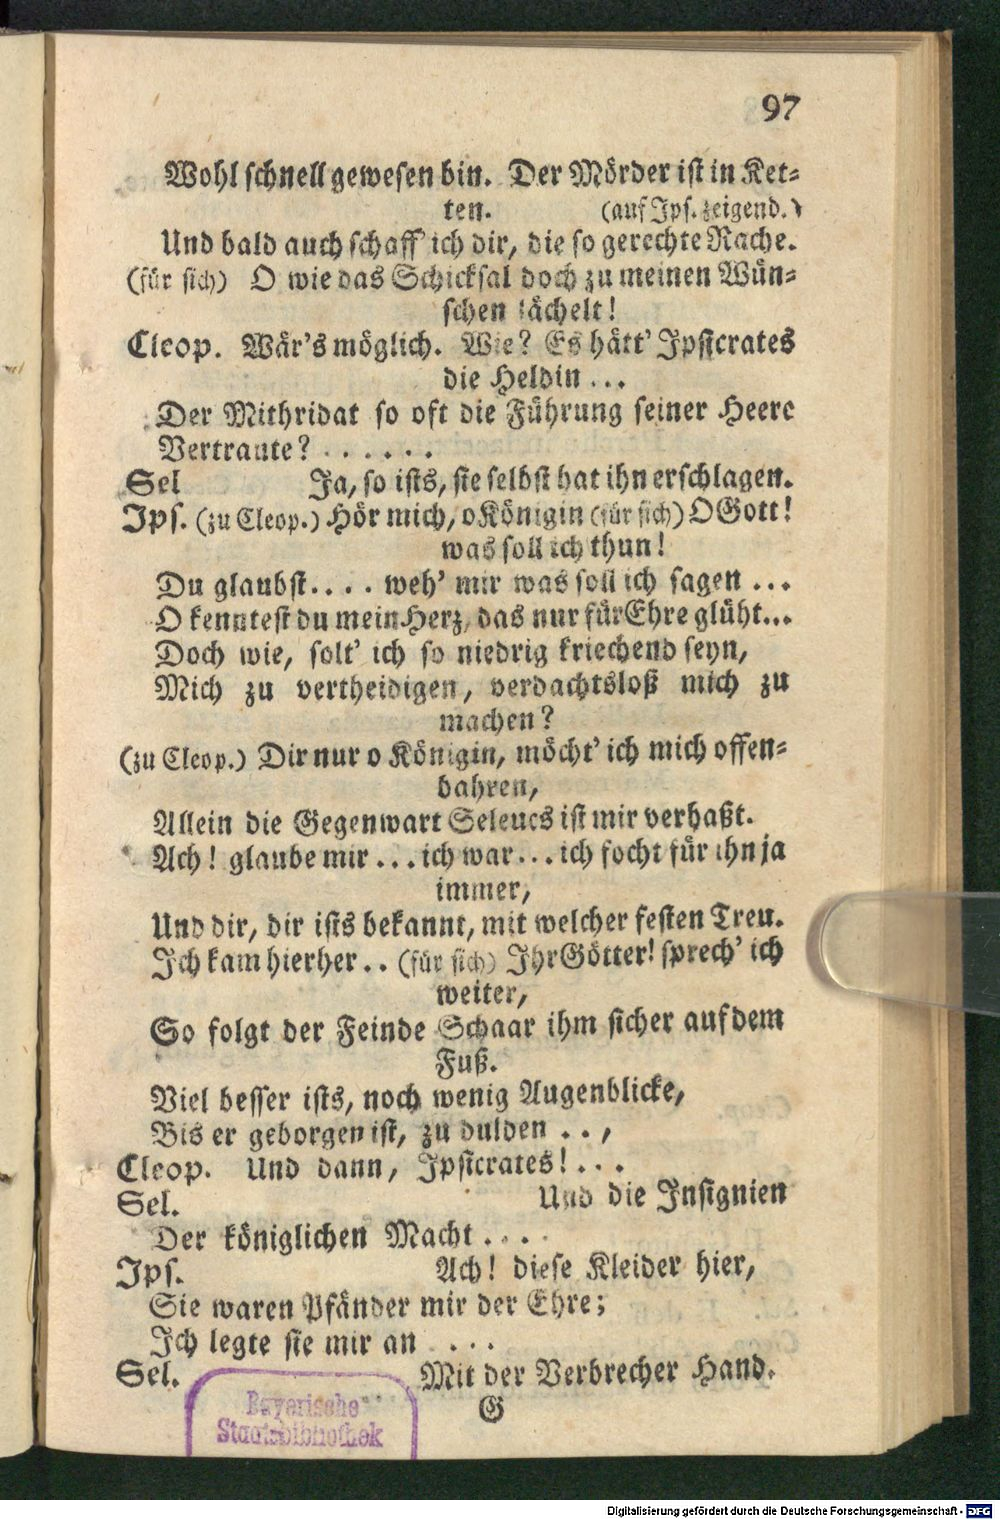 97
Wohl schnell gewesen bin. Der Mörder ist in Ket-
ten. (auf Ips. zeigend.)
Und bald auch schaff' ich dir, die so gerechte Rache.
(für sich) O wie das Schicksal doch zu meinen Wün-
schen lächelt!
Cleop. Wär's möglich. Wie? Es hätt' Ipsicrates
die Heldin ...
Der Mithridat so oft die Führung seiner Heere
Vertraute? . . . . . .
Sel Ja, so ists, sie selbst hat ihn erschlagen.
Ips. (zu Cleop.) Hör mich, o Königin (für sich) O Gott!
was soll ich thun!
Du glaubst.... weh' mir was soll ich sagen ...
O kenntest du mein Herz, das nur für Ehre glüht...
Doch wie, solt' ich so niedrig kriechend seyn,
Mich zu vertheidigen, verdachtsloß mich zu
machen?
(zu Cleop.) Dir nur o Königin, möcht' ich mich offen-
bahren,
Allein die Gegenwart Seleucs ist mir verhaßt.
Ach! glaube mir ... ich war... ich focht für ihn ja
immer,
Und dir, dir ists bekannt, mit welcher festen Treu.
Ich kam hierher .. (für sich) Ihr Götter! sprech' ich
weiter,
So folgt der Feinde Schaar ihm sicher auf dem
Fuß.
Viel besser ists, noch wenig Augenblicke,
Bis er geborgen ist, zu dulden . . ,
Cleop. Und dann, Ipsicrates! . . .
Sel. Und die Insignien
Der königlichen Macht . . . .
Ips. Ach! diese Kleider hier,
Sie waren Pfänder mir der Ehre;
Ich legte sie mir an . . . .
Sel. Mit der Verbrecher Hand.
G
Bayerische
Staatsbibliothek
Digitalisierung gefördert durch die Deutsche Forschungsgemeinschaft - DFG